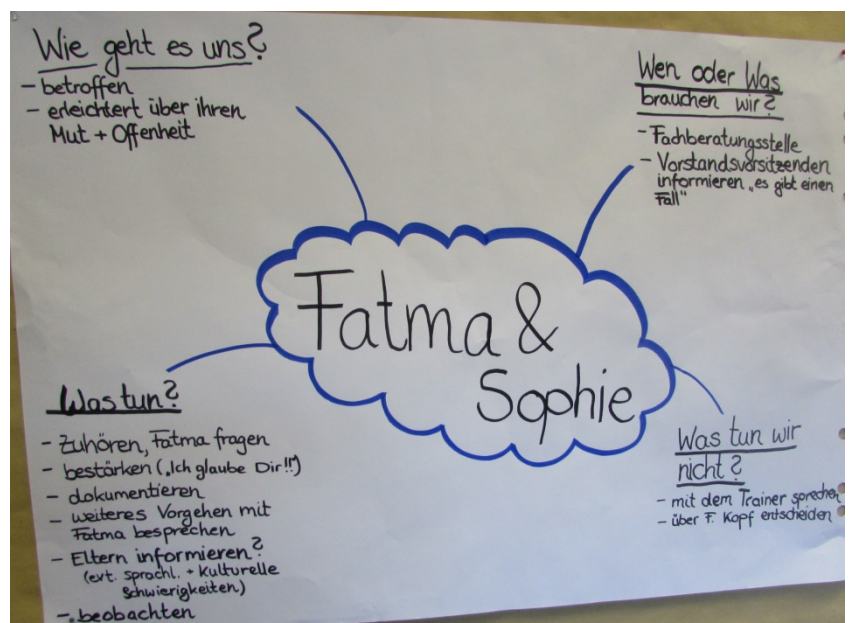 Wie geht es uns?
- betroffen
- erleichtert über ihren
Mut + Offenheit
Wen oder Was
brauchen wir?
- Fachberatungsstelle
- Vorstandsvorsitzenden
informieren „es gibt einen
Fall"
Fatma &
Sophie
Was tun?
- Zuhören, Fatma fragen
- bestärken („Ich glaube Dir!!")
- dokumentieren
- weiteres Vorgehen mit
Fatma besprechen
- Eltern informieren?
(evt. sprachl. + Kulturelle
Schwierigkeiten)
- beobachten
Was tun wir
nicht?
- mit dem Trainer sprechen
- über F. Kopf entscheiden